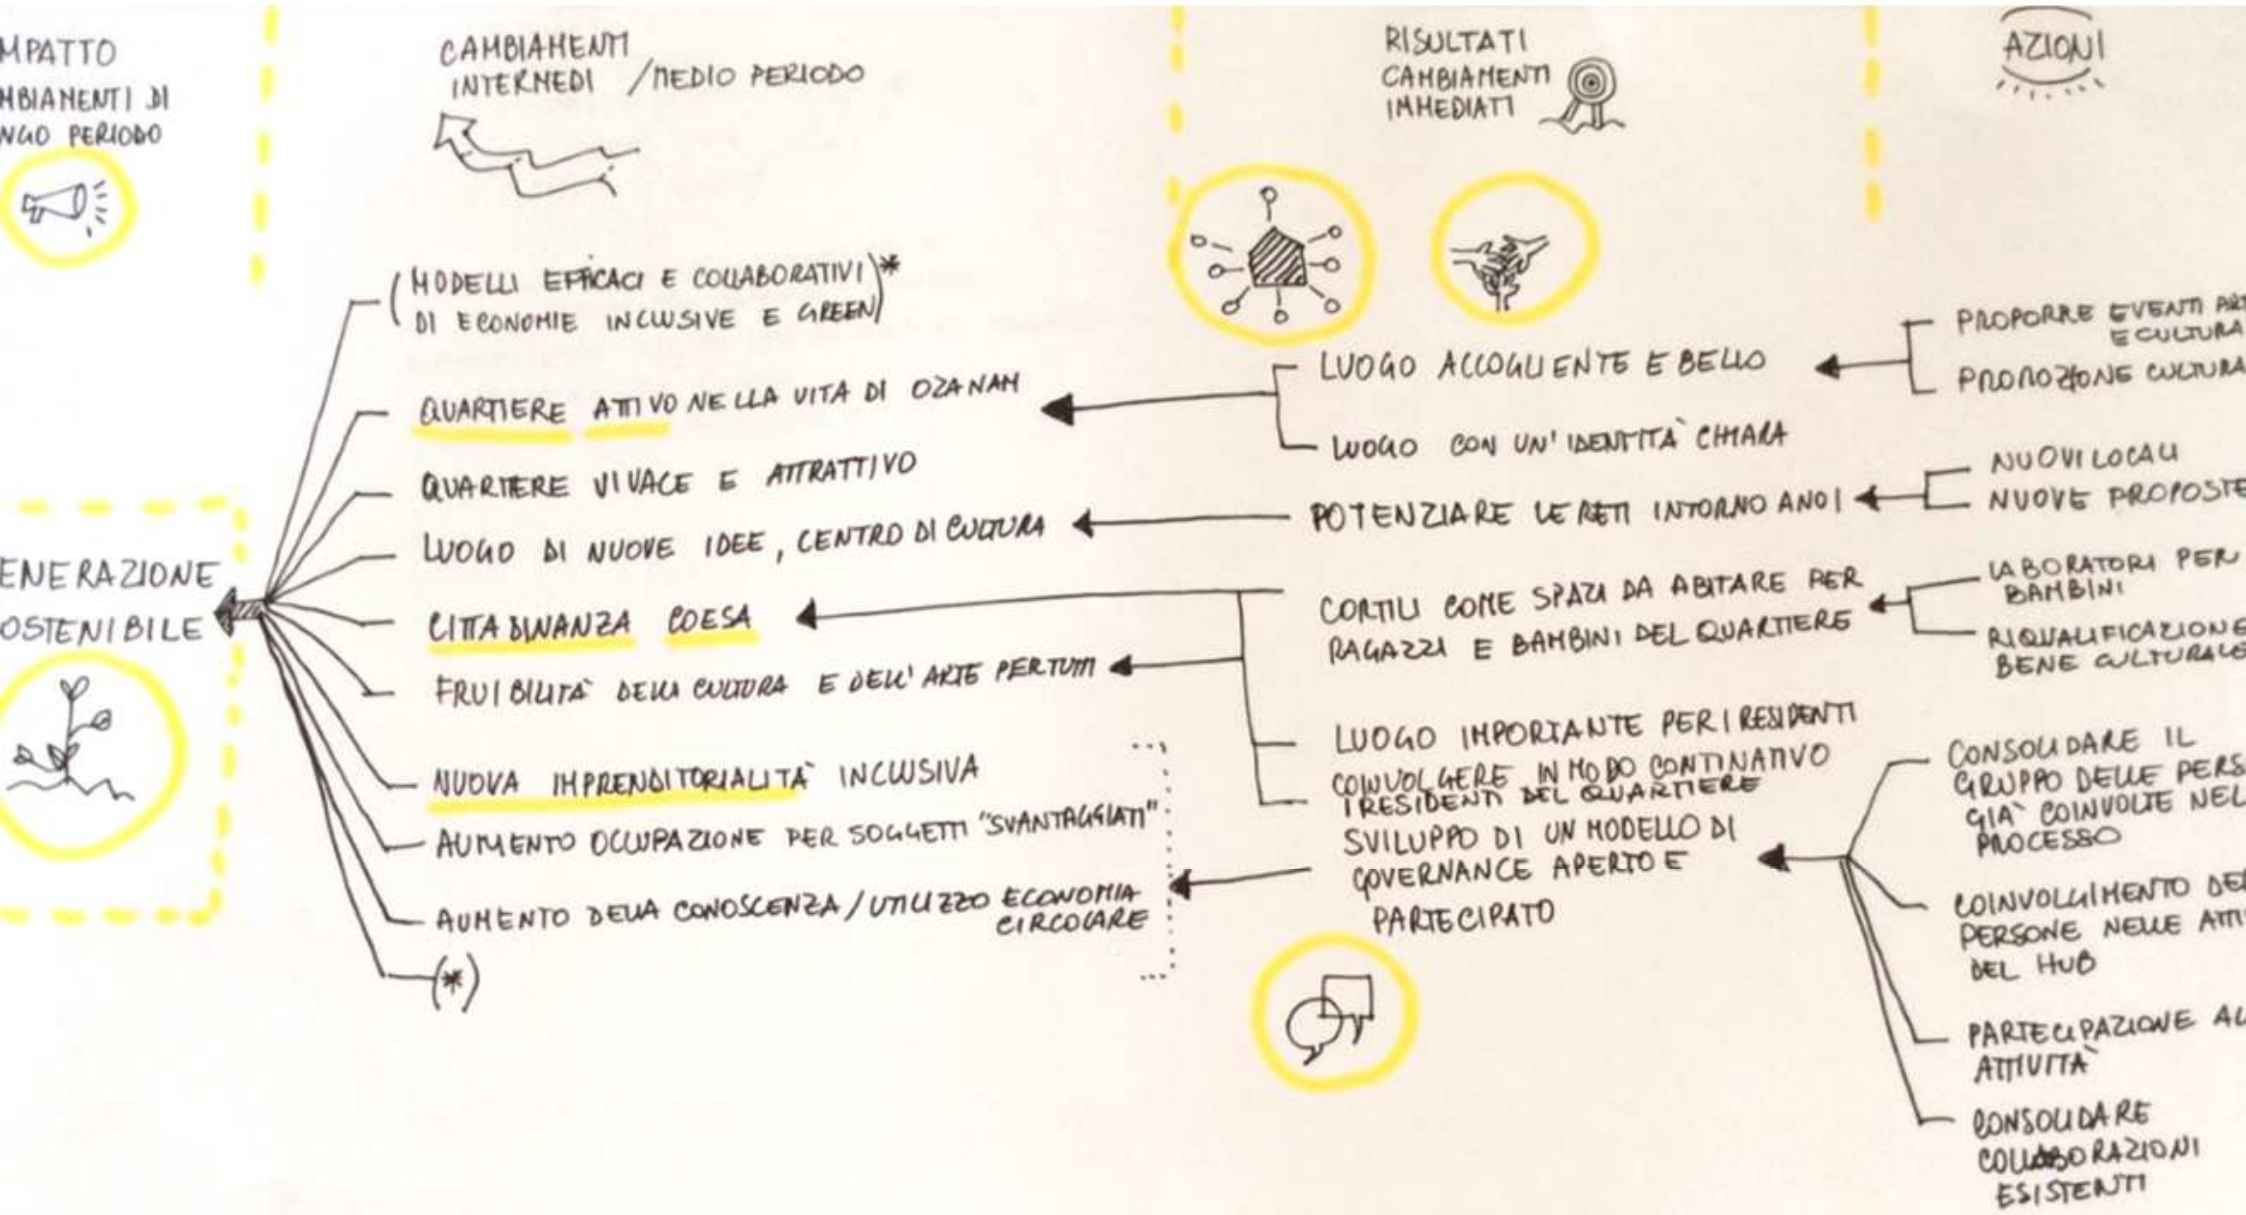 MPATTO
MBIAMENTI DI
NGO PERIODO
ENERAZIONE
OSTENIBILE
CAMBIAMENTI
INTERMEDI / MEDIO PERIODO
(MODELLI EFFICACI E COLLABORATIVI)*
DI ECONOMIE INCLUSIVE E GREEN)
QUARTIERE ATTIVO NELLA VITA DI OZANAM
QUARTIERE VIVACE E ATTRATTIVO
LUOGO DI NUOVE IDEE, CENTRO DI CULTURA
CITTADINANZA COESA
FRUIBILITÀ DELLA CULTURA E DELL'ARTE PER TUTTI
NUOVA IMPRENDITORIALITÀ INCLUSIVA
AUMENTO OCCUPAZIONE PER SOGGETTI "SVANTAGGIATI"
AUMENTO DELLA CONOSCENZA / UTILIZZO ECONOMIA
CIRCOLARE
(*)
RISULTATI
CAMBIAMENTI
IMMEDIATI
LUOGO ACCOGLIENTE E BELLO
LUOGO CON UN'IDENTITÀ CHIARA
POTENZIARE LE RETI INTORNO A NOI
CORTILI COME SPAZI DA ABITARE PER
RAGAZZI E BAMBINI DEL QUARTIERE
LUOGO IMPORTANTE PER I RESIDENTI
COINVOLGERE IN MODO CONTINATIVO
I RESIDENTI DEL QUARTIERE
SVILUPPO DI UN MODELLO DI
GOVERNANCE APERTO E
PARTECIPATO
AZIONI
PROPORRE EVENTI ART
E CULTURA
PROMOZIONE CULTURA
NUOVI LOCALI
NUOVE PROPOSTE
LABORATORI PER
BAMBINI
RIQUALIFICAZIONE
BENE CULTURALE
CONSOLIDARE IL
GRUPPO DELLE PERS
GIÀ COINVOLTE NEL
PROCESSO
COINVOLGIMENTO DEL
PERSONE NELLE ATTI
DEL HUB
PARTECIPAZIONE AL
ATTIVITÀ
CONSOLIDARE
COLLABORAZIONI
ESISTENTI